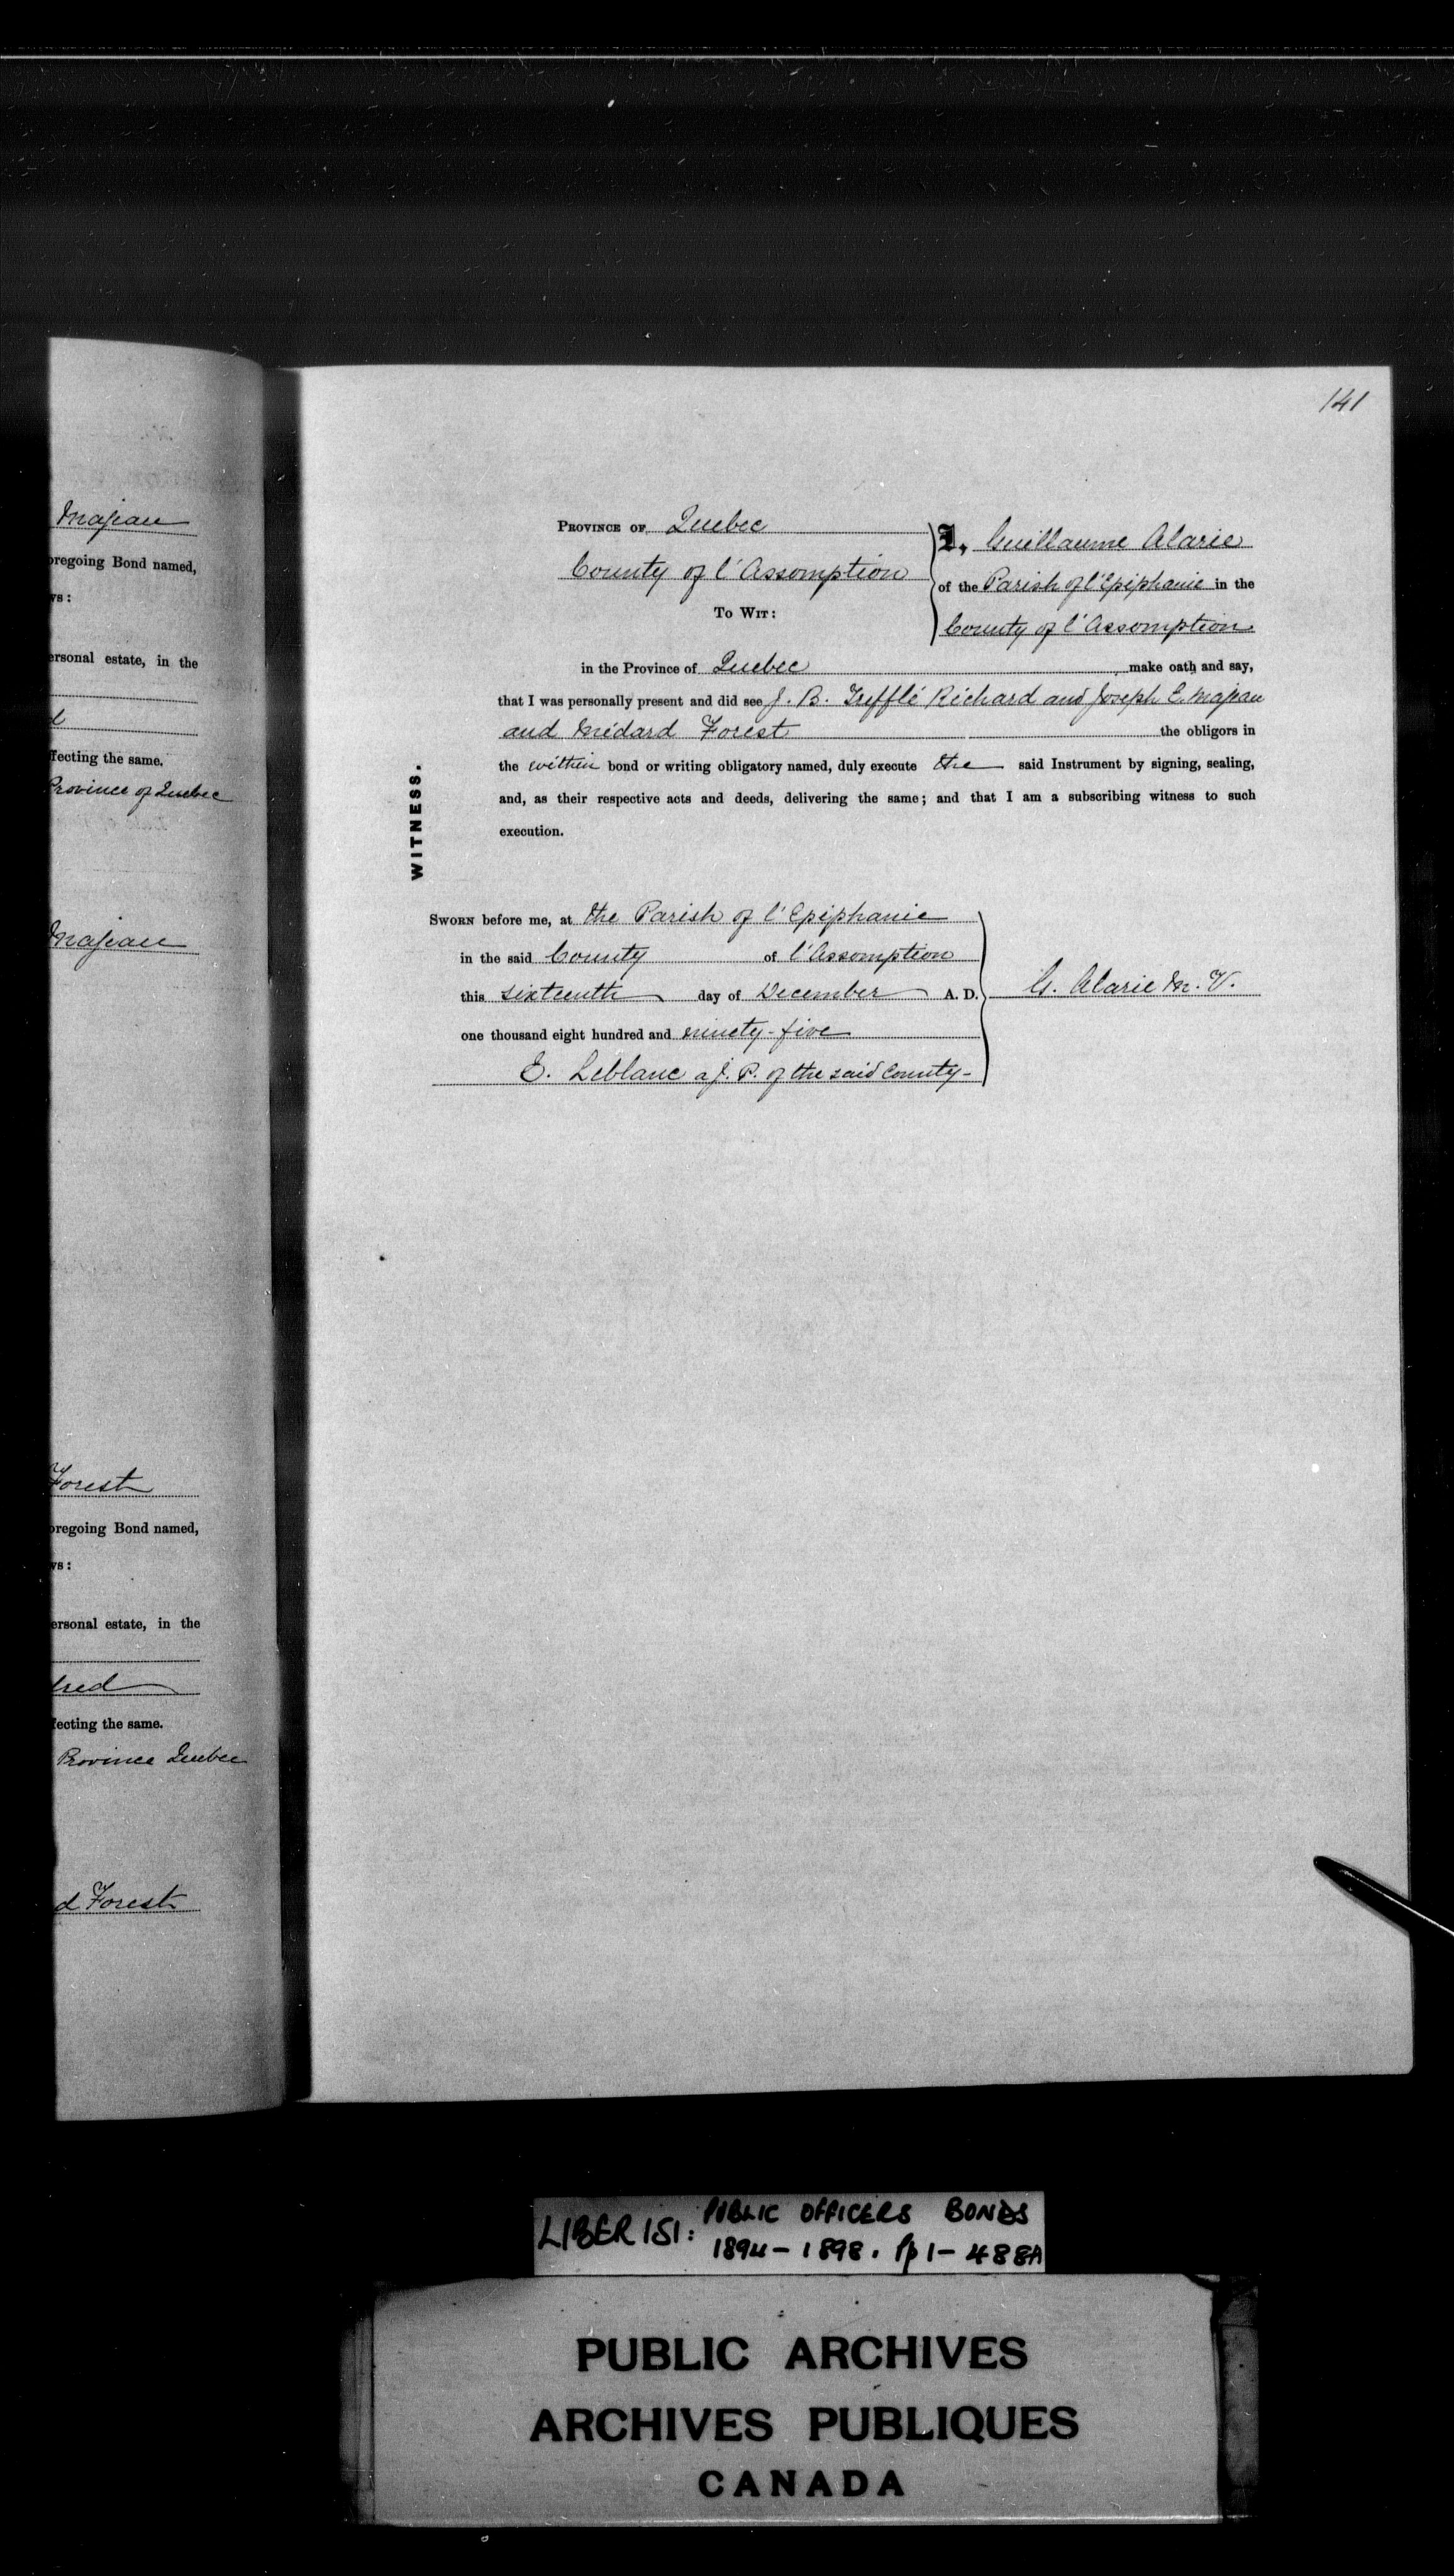 141
Majeau
oregoing Bond named,
vs:
ersonal estate, in the
d
fecting the same.
Province of Quebec
Majeau
Forest
oregoing Bond named,
vs:
ersonal estate, in the
dred
fecting the same.
Province Quebec
d Forest
PROVINCE OF Quebec
County of l'Assomption
TO WIT:
I, Guillaume Alarie
of the Parish of l'Epiphanie in the
County of l'Assomption
in the Province of Quebec make oath and say,
that I was personally present and did see J. B. Trefflé Richard and Joseph E. Majeau
and Médard Forest the obligors in
the within bond or writing obligatory named, duly execute the said Instrument by signing, sealing,
and, as their respective acts and deeds, delivering the same; and that I am a subscribing witness to such
execution.
WITNESS.
SWORN before me, at the Parish of l'Epiphanie
in the said County of l'Assomption
this sixteenth day of December A. D.
one thousand eight hundred and ninety-five
E. Leblanc a J. P. of the said County-
G. Alarie M. V.
LIBER 151: PUBLIC OFFICERS BONDS
1894-1898. pp 1-488A
PUBLIC ARCHIVES
ARCHIVES PUBLIQUES
CANADA